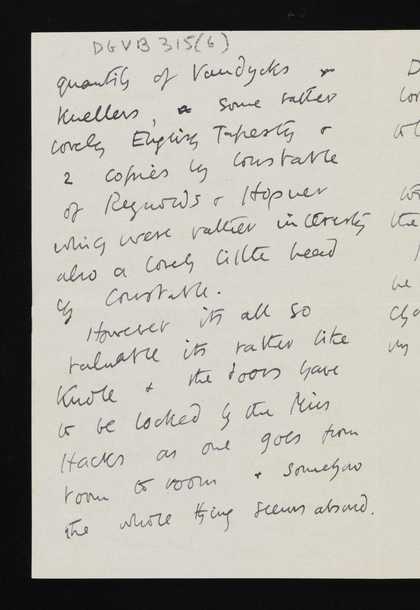 DGVB 315(6)
quantity of Vandycks &
Knellers, & some rather
lovely English Tapestry &
2 copies by Constable
of Reynolds & Hopner
which were rather interesting
also a lovely little head
by Constable.
However its all so
valuable its rather like
Knole & the doors have
to be locked by the Miss
Hacks as one goes from
room to room & somehow
the whole thing seems absurd.